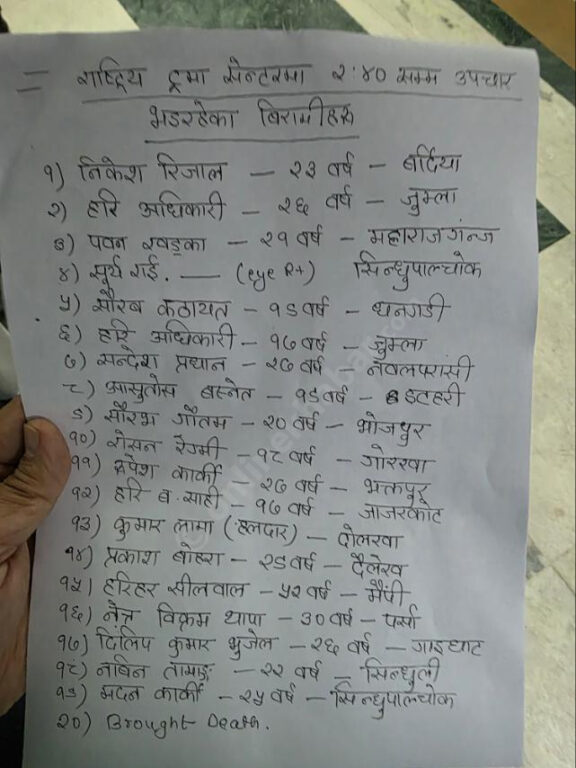 = राष्ट्रिय ट्रमा सेन्टरमा २:४० सम्म उपचार
भइरहेका बिरामीहरु
१) निकेश रिजाल — २३ वर्ष — बर्दिया
२) हरि अधिकारी — २६ वर्ष — जुम्ला
३) पवन खड्का — २१ वर्ष — महाराजगन्ज
४) सूर्य राई. — (eye R+) सिन्धुपाल्चोक
५) सौरब कठायत — १९ वर्ष — धनगडी
६) हरि अधिकारी — १७ वर्ष — जुम्ला
७) सन्देश प्रधान — २७ वर्ष — नवलपरासी
८) आसुतोस बस्नेत — १९ वर्ष — इटहरी
९) सौरभ गौतम — २० वर्ष — भोजपुर
१०) रोसन रेग्मी — १८ वर्ष — गोरखा
११) रुपेश कार्की — २७ वर्ष — भक्तपुर
१२) हरि ब. साही — १७ वर्ष — जाजरकोट
१३) कुमार लामा (हलदार) — दोलखा
१४) प्रकाश बोहरा — २९ वर्ष — दैलेख
१५) हरिहर सीलवाल — ५२ वर्ष —
१६) नेत्र विक्रम थापा — ३० वर्ष — पर्सा
१७) दिलिप कुमार भुजेल — २६ वर्ष — गाइघाट
१८) नबिन तामाङ्ग — २२ वर्ष — सिन्धुली
१९) मदन कार्की — २५ वर्ष — सिन्धुपाल्चोक
२०) Brought Death.